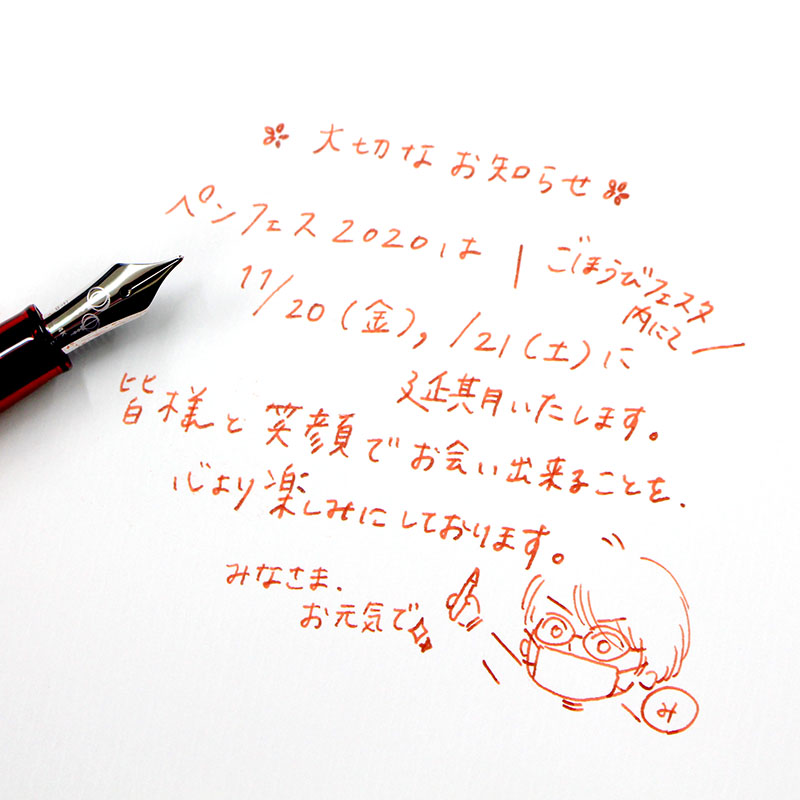 大切なお知らせ
ペンフェス2020は
ごほうびフェスタ
内にて
11/20(金),/21(土)に
延期いたします。
皆様と笑顔でお会い出来ることを、
心より楽しみにしております。
みなさま、
お元気で
み